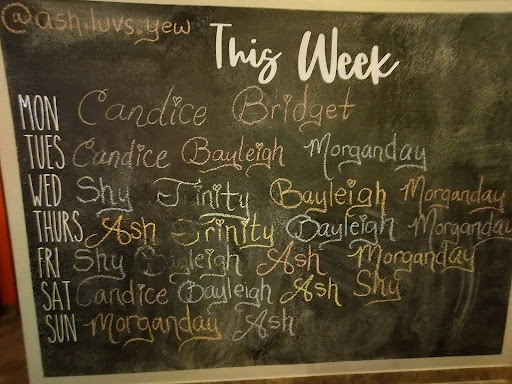 @ash.luvs.yew
This Week
MON Candice Bridget
TUES Candice Bayleigh Morganday
WED Shy Trinity Bayleigh Morganday
THURS Ash Trinity Bayleigh Morganday
FRI Shy Bayleigh Ash Morganday
SAT Candice Bayleigh Ash Shy
SUN Morganday Ash